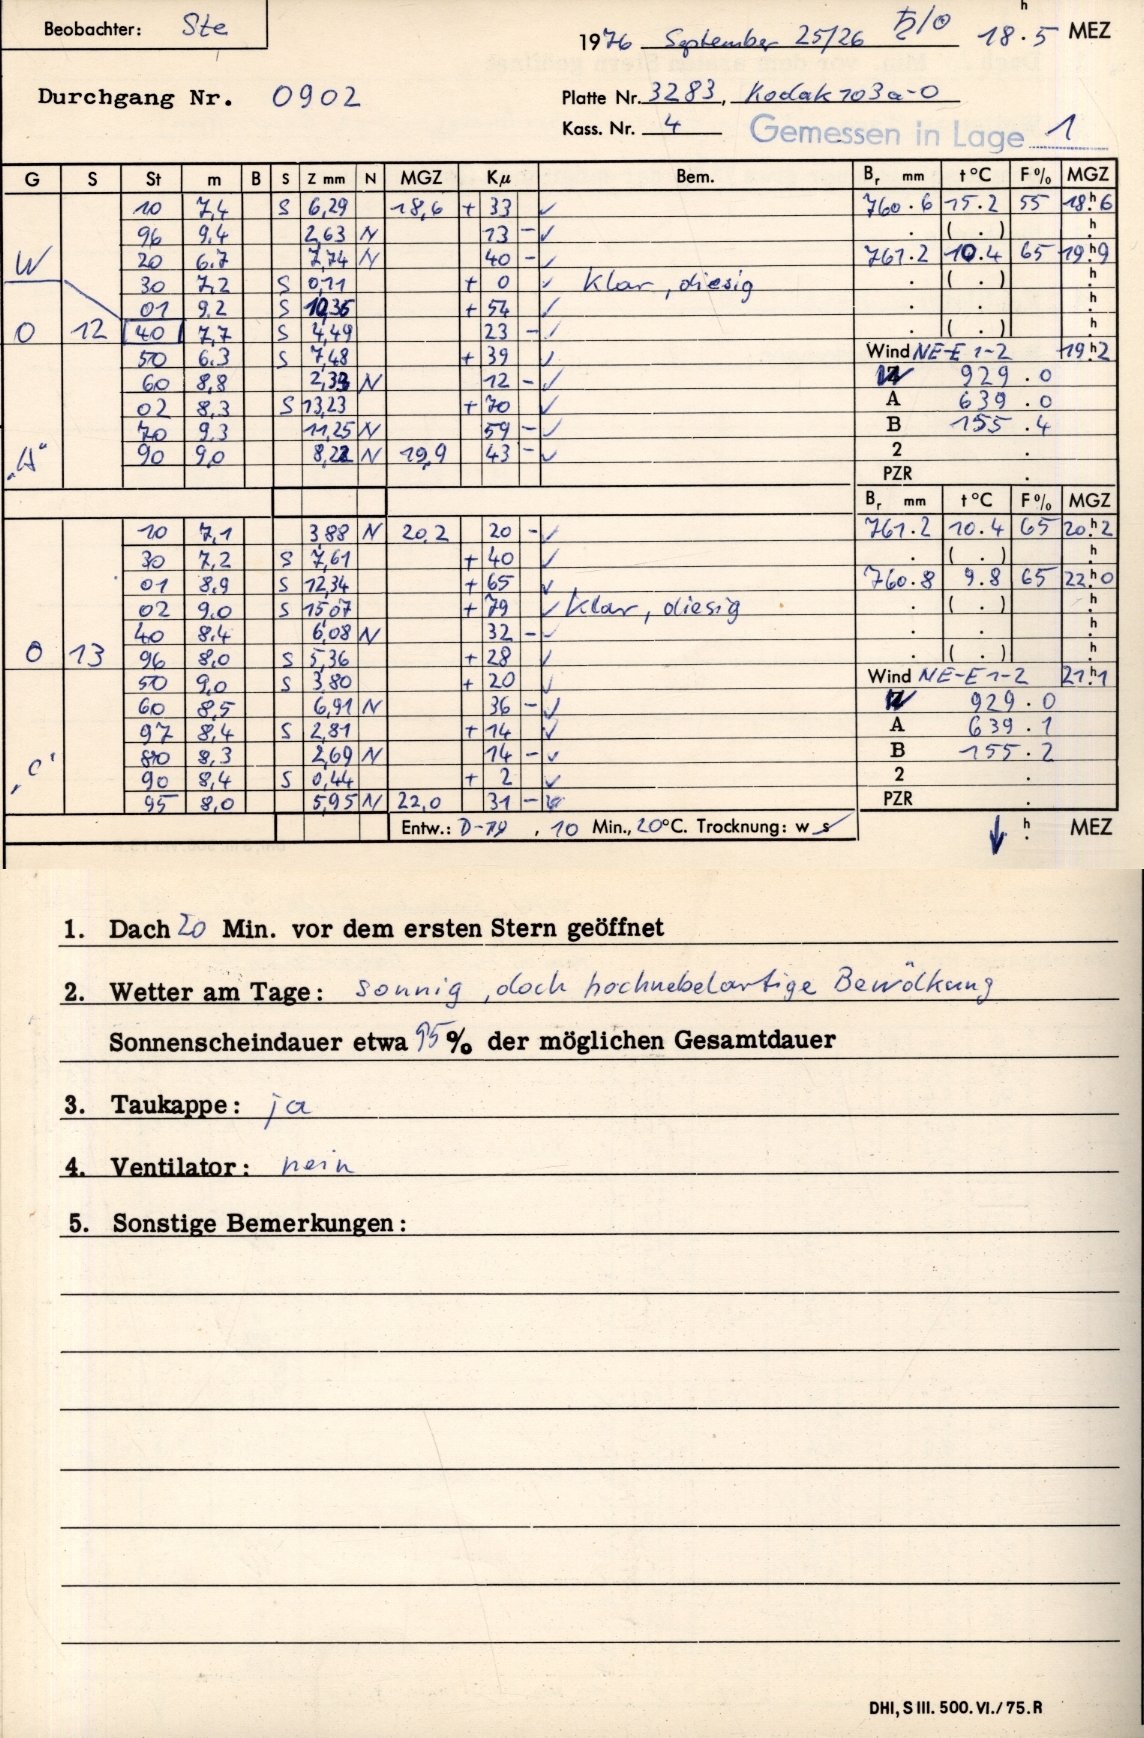 Beobachter: Ste
1976 September 25/26 ♄/☉ 18.5 h MEZ
Durchgang Nr. 0902
Platte Nr. 3283, Kodak 103a-O
Kass. Nr. 4 Gemessen in Lage 1
G S St m B S Z mm N MGZ Kμ Bem. Br mm t °C F % MGZ
10 7,4 S 6,29 18,6 + 33 ✓ 760.6 15.2 55 18.h6
96 9,4 2,63 N 13 - ✓ . ( . ) h
W 20 6.7 7,74 N 40 - ✓ 761.2 10.4 65 19.h9
30 7,2 S 0,11 + 0 ✓ klar, diesig . ( . ) h
01 9,2 S 10,36 + 54 ✓ . . h
O 12 40 7,7 S 4,49 23 - ✓ . ( . ) h
50 6.3 S 7,48 + 39 ✓ Wind NE-E 1-2 19.h2
60 8,8 2,33 N 12 - ✓ 929.0
02 8,3 S 13,23 + 70 ✓ A 639.0
70 9,3 11,25 N 59 - ✓ B 155.4
„A" 90 9,0 8,22 N 19,9 43 - ✓ 2 .
PZR .
Br mm t °C F % MGZ
10 7,1 3,88 N 20,2 20 - ✓ 761.2 10.4 65 20.h2
30 7,2 S 7,61 + 40 ✓ . ( . ) h
01 8,9 S 12,34 + 65 ✓ 760.8 9.8 65 22.h0
02 9,0 S 15,07 + 79 ✓ klar, diesig . ( . ) h
40 8.4 6,08 N 32 - ✓ . . h
O 13 96 8,0 S 5,36 + 28 ✓ . ( . ) h
50 9,0 S 3,80 + 20 ✓ Wind NE-E 1-2 21.h1
60 8,5 6,91 N 36 - ✓ 929.0
97 8,4 S 2,81 + 14 ✓ A 639.1
80 8,3 2,69 N 14 - ✓ B 155.2
„C" 90 8,4 S 0,44 + 2 ✓ 2 .
95 8,0 5,95 N 22,0 31 - ✓ PZR .
Entw.: D-19, 10 Min., 20°C. Trocknung: w s ↓ h . MEZ
1. Dach 20 Min. vor dem ersten Stern geöffnet
2. Wetter am Tage: sonnig, doch hochnebelartige Bewölkung
Sonnenscheindauer etwa 95% der möglichen Gesamtdauer
3. Taukappe: ja
4. Ventilator: nein
5. Sonstige Bemerkungen:
DHI, S III. 500. VI./75. R